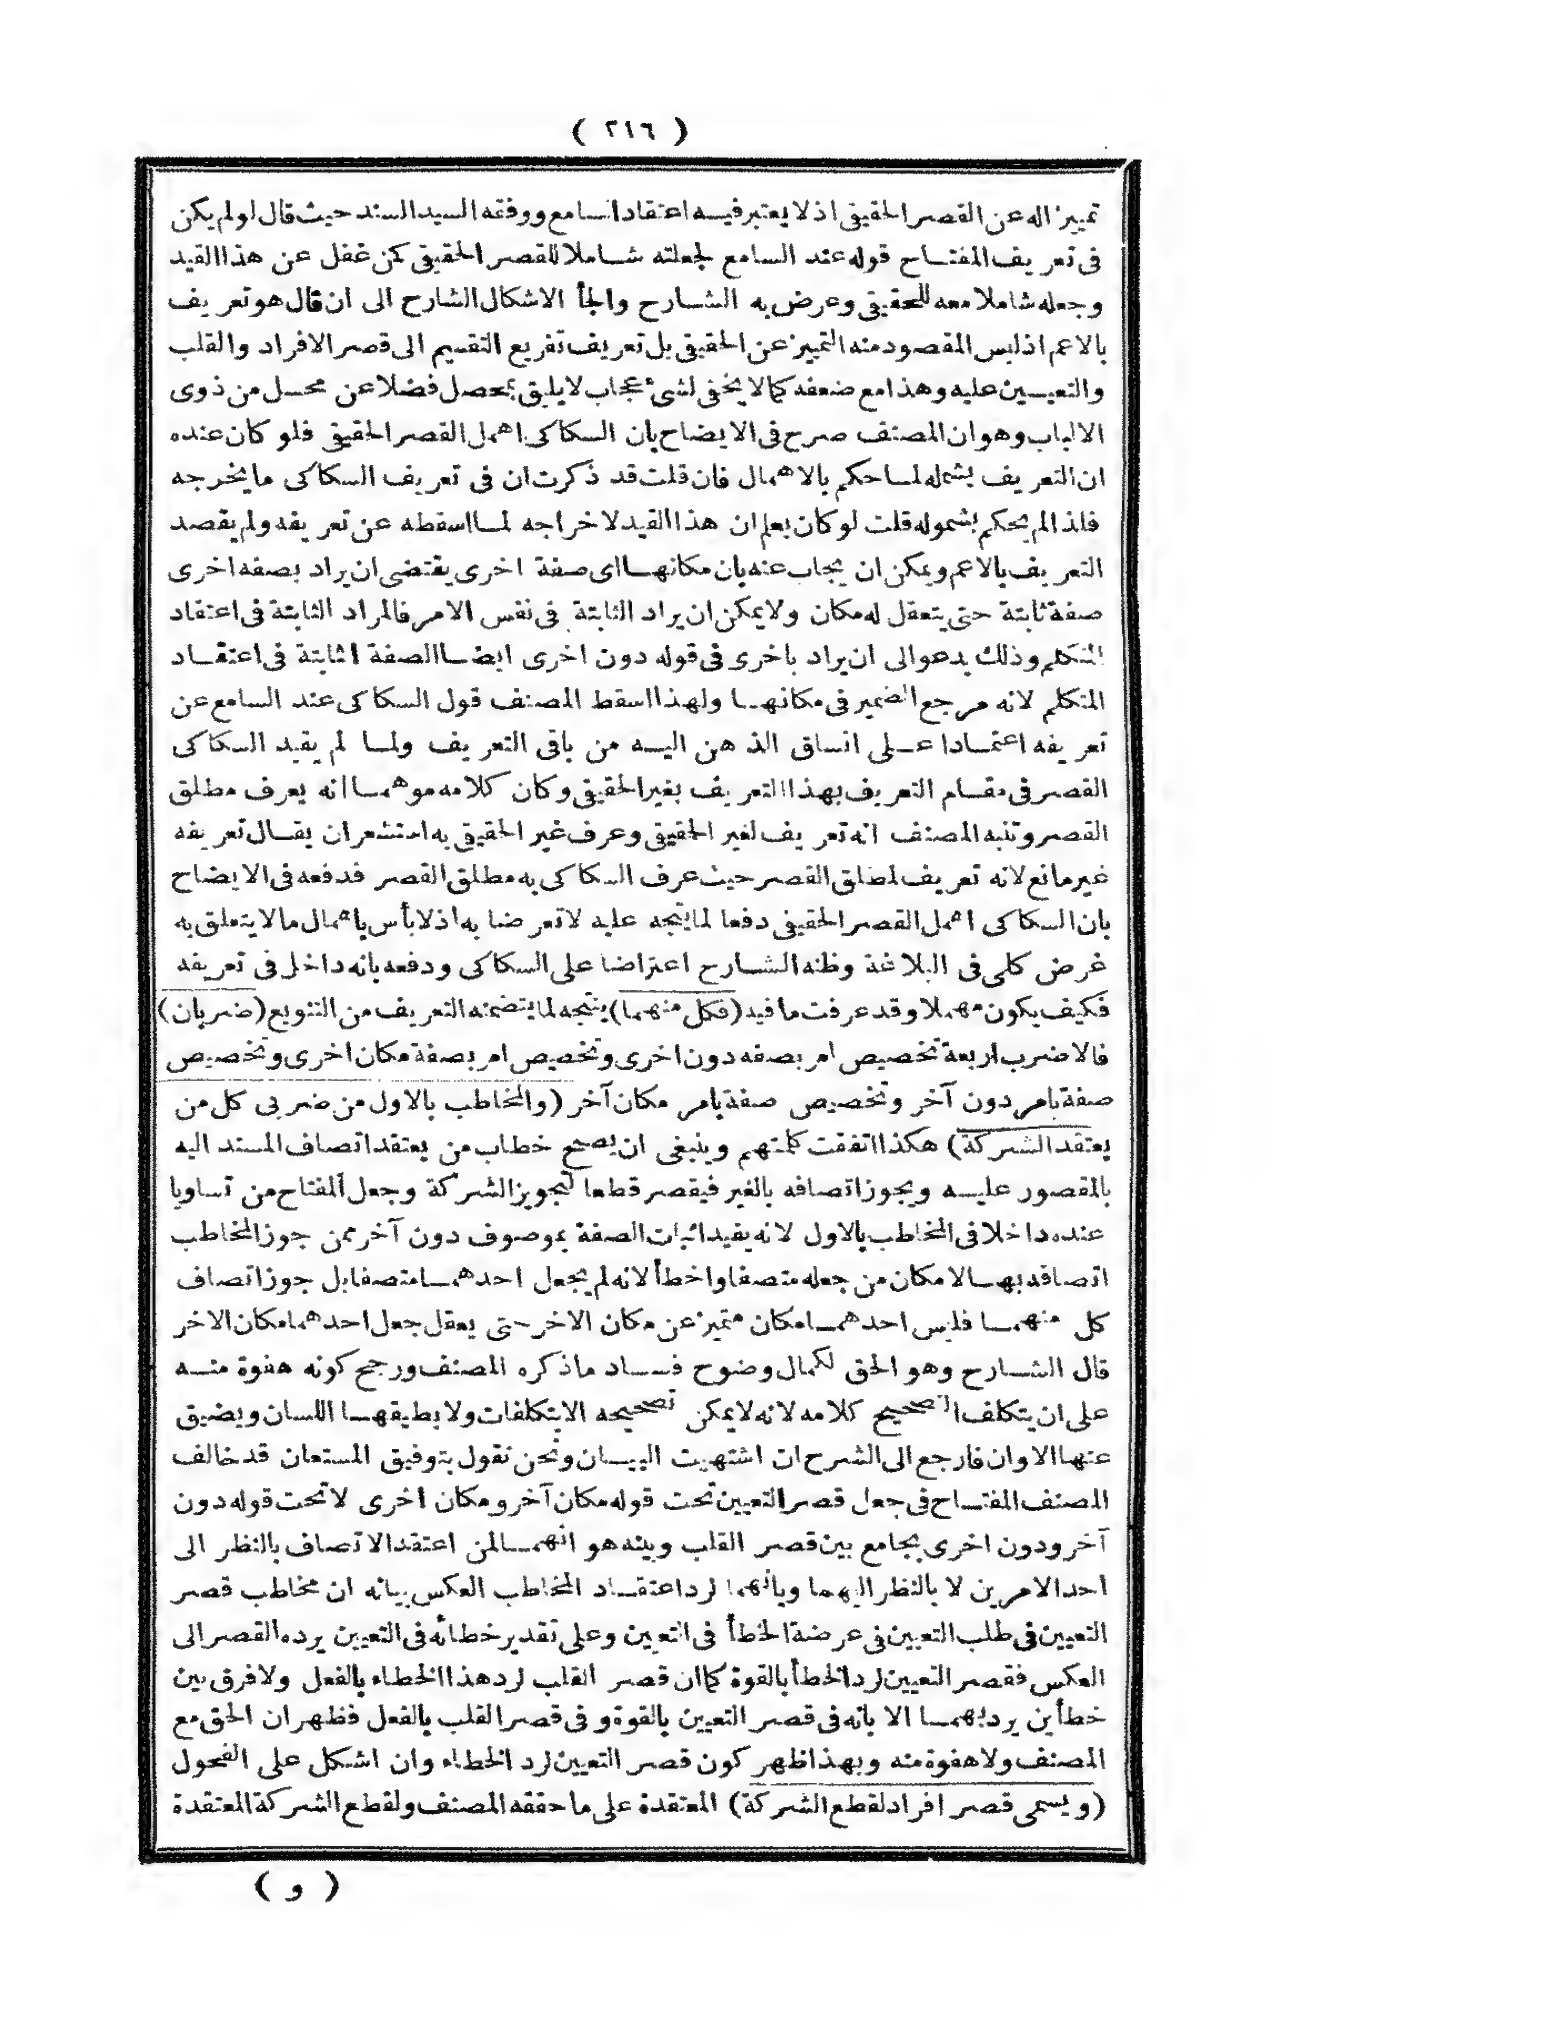 ( ٢١٦ )
تمييزا له عن القصر الحقيقى اذ لا يعتبر فيه اعتقاد السامع ووفقه السيد السند حيث قال لو لم يكن
فى تعريف المفتاح قوله عند السامع لجعلته شاملا للقصر الحقيقى لكن غفل عن هذا القيد
وجعله شاملا معه للحقيقى وعرض به الشارح والجأ الاشكال الشارح الى ان قال هو تعريف
بالاعم اذ ليس المقصود منه التمييز عن الحقيقى بل تعريف تفريع التقسيم الى قصر الافراد والقلب
والتعيين عليه وهذا مع ضعفه كما لا يخفى لشىء عجاب لا يليق بمحصل فضلا عن محل من ذوى
الالباب وهو ان المصنف صرح فى الايضاح بان السكاكى اهمل القصر الحقيقى فلو كان عنده
ان التعريف يشمله لما حكم بالاهمال فان قلت قد ذكرت ان فى تعريف السكاكى ما يخرجه
فلذا لم يحكم بشموله قلت لو كان يعلم ان هذا القيد لاخراجه لما اسقطه عن تعريفه ولم يقصد
التعريف بالاعم ويمكن ان يجاب عنه بان مكانها اى صفة اخرى يقتضى ان يراد بصفه اخرى
صفة ثابتة حتى يتعقل له مكان ولا يمكن ان يراد الثابتة فى نفس الامر فالمراد الثابتة فى اعتقاد
المتكلم وذلك يدعو الى ان يراد باخرى فى قوله دون اخرى ايضا الصفة الثابتة فى اعتقاد
المتكلم لانه مرجع الضمير فى مكانها ولهذا اسقط المصنف قول السكاكى عند السامع عن
تعريفه اعتمادا على انسياق الذهن اليه من باقى التعريف ولما لم يقيد السكاكى
القصر فى مقام التعريف بهذا التعريف بغير الحقيقى وكان كلامه موهما انه يعرف مطلق
القصر وتنبه المصنف انه تعريف لغير الحقيقى وعرف غير الحقيقى به استشعر ان يقال تعريفه
غير مانع لانه تعريف لمطلق القصر حيث عرف السكاكى به مطلق القصر فدفعه فى الايضاح
بان السكاكى اهمل القصر الحقيقى دفعا لما يتجه عليه لا تعرضا به اذ لا بأس باهمال ما لا يتعلق به
غرض كلى فى البلاغة وظنه الشارح اعتراضا على السكاكى ودفعه بانه داخل فى تعريفه
فكيف يكون مهملا وقد عرفت ما فيه (فكل منهما) يتجه لما يتضمنه التعريف من التنويع (ضربان)
فالاضرب اربعة تخصيص امر بصفه دون اخرى وتخصيص امر بصفة مكان اخرى وتخصيص
صفة بامر دون آخر وتخصيص صفة بامر مكان آخر (والمخاطب بالاول من ضربى كل من
يعتقد الشركة) هكذا اتفقت كلمتهم وينبغى ان يصح خطاب من يعتقد اتصاف المسند اليه
بالمقصور عليه ويجوز اتصافه بالغير فيقصر قطعا لتجويز الشركة وجعل المفتاح من تساويا
عنده داخلا فى المخاطب بالاول لانه يفيد اثبات الصفة بموصوف دون آخر ممن جوز المخاطب
اتصافه بها لا مكان من جعله متصفا واخطأ لانه لم يجعل احدهما متصفا بل جوز اتصاف
كل منهما فليس احدهما مكان متميز عن مكان الاخر حتى يعقل جعل احدهما مكان الاخر
قال الشارح وهو الحق لكمال وضوح فساد ما ذكره المصنف ورجح كونه هفوة منه
على ان يتكلف التصحيح كلامه لانه لا يمكن تصحيحه الا بتكلفات ولا يطيقها اللسان ويضيق
عنها الاوان فارجع الى الشرح ان اشتهيت البيان ونحن نقول بتوفيق المستعان قد خالف
المصنف المفتاح فى جعل قصر التعيين تحت قوله مكان آخر ومكان اخرى لا تحت قوله دون
آخر ودون اخرى بجامع بين قصر القلب وبينه هو انهما لمن اعتقد الاتصاف بالنظر الى
احد الامرين لا بالنظر اليهما وبانهما لرد اعتقاد المخاطب العكس بيانه ان مخاطب قصر
التعيين فى طلب التعيين فى عرضة الخطأ فى التعيين وعلى تقدير خطائه فى التعيين يرده القصر الى
العكس فقصر التعيين لرد الخطأ بالقوة كما ان قصر القلب لرد هذا الخطاء بالفعل ولا فرق بين
خطأين يرد بهما الا بانه فى قصر التعيين بالقوة وفى قصر القلب بالفعل فظهر ان الحق مع
المصنف ولا هفوة منه وبهذا ظهر كون قصر التعيين لرد الخطاء وان اشكل على الفحول
(ويسمى قصر افراد لقطع الشركة) المعتقدة على ما حققه المصنف ولقطع الشركة المعتقدة
( و )